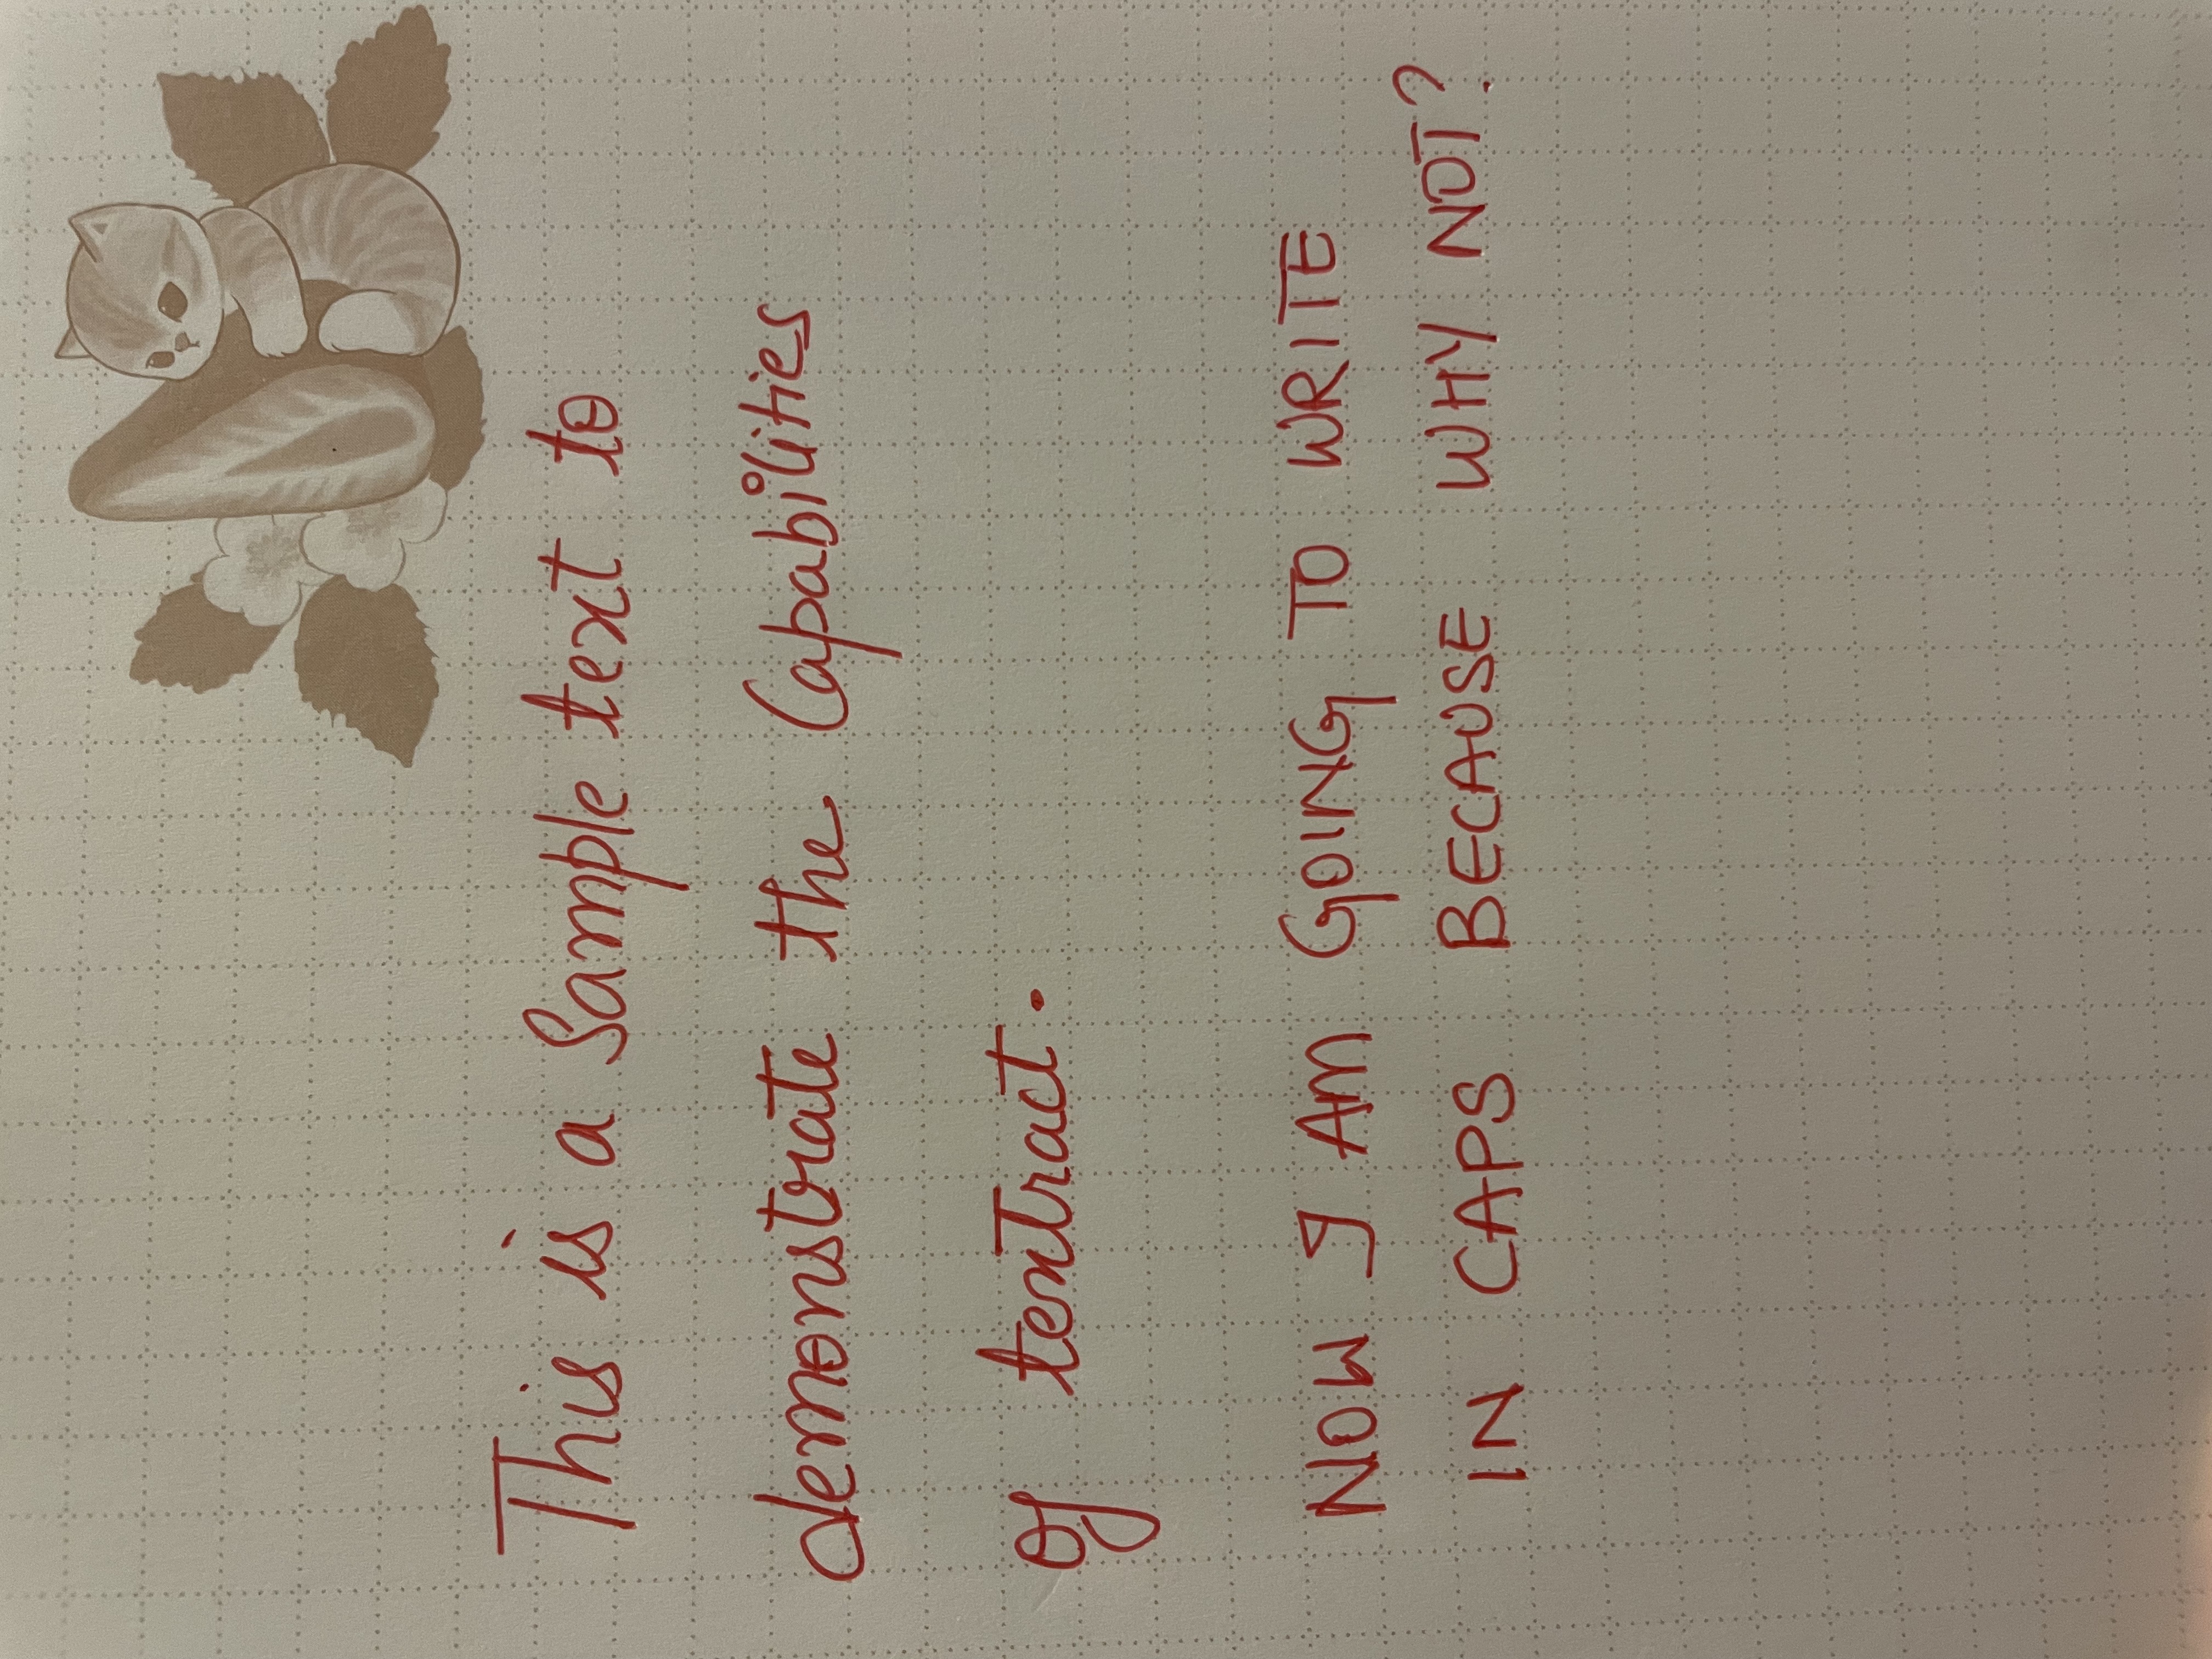 This is a Sample text to
demonstrate the Capabilities
of textract.
NOW I AM GOING TO WRITE
IN CAPS BECAUSE WHY NOT?